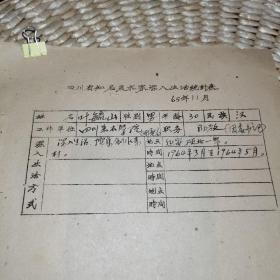 四川省知名美术家深入生活统计表
65年11月
姓名 叶毓山 性别 男 年龄 30 民族 汉
工作单位 四川美术学院 职务
深入生活方式
深入生活 搜集创作素材。
地点
时间 1964年3月至1964年5月。
地点
时间
地点
时间